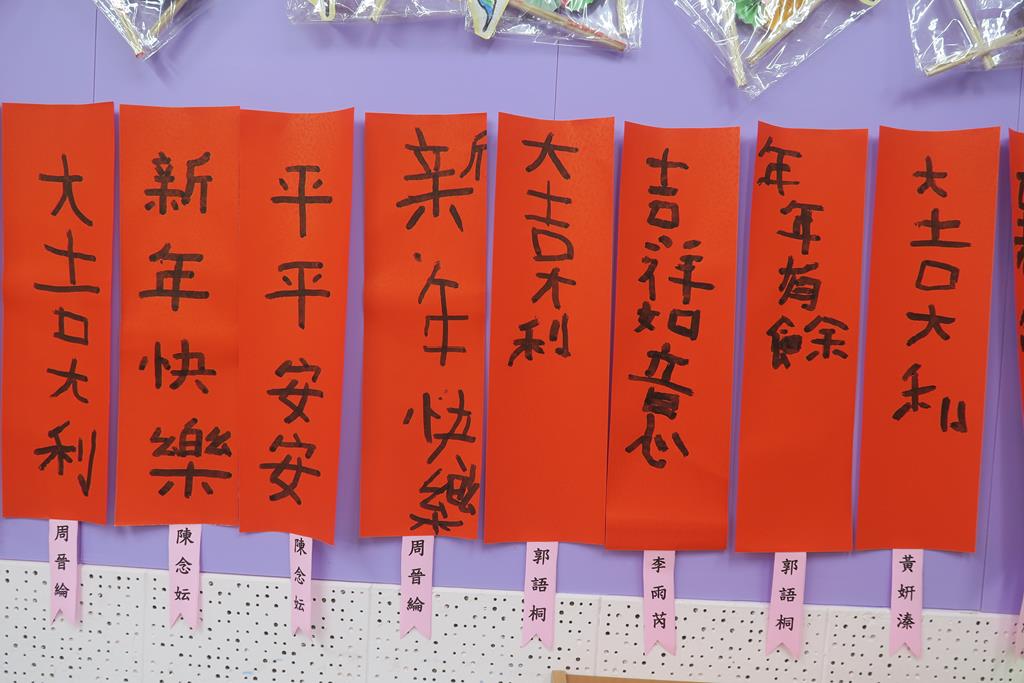 大吉大利
周晉綸
新年快樂
陳念妘
平平安安
陳念妘
新年快樂
周晉綸
大吉大利
郭語桐
吉祥如意
李雨芮
年年有餘
郭語桐
大吉大利
黃妍溱